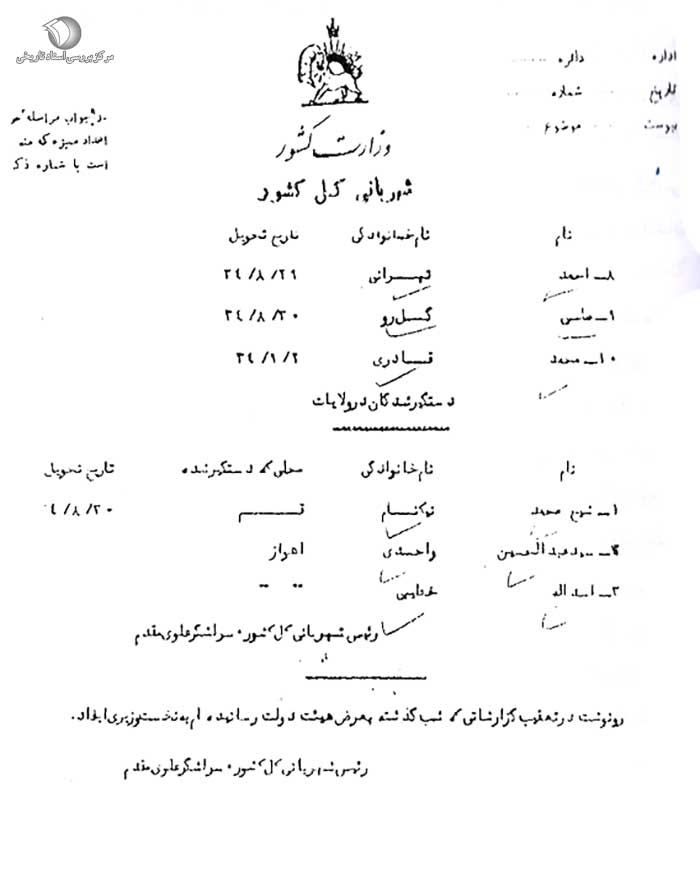 مرکز بررسی اسناد تاریخی
اداره دائره
تاریخ شماره
پیوست موضوع
در جواب مراسله
اعداد ممیزه که
است با شماره ذکر
وزارت کشور
شهربانی کل کشور
نام نام خانوادگی تاریخ تحویل
۸ــ احمد تهرانی ۳٤/۸/۲۹
گسل رو ۳٤/۸/۳۰
۱۰ــ محمد قادری
دستگیرشدگان در ولایات
نام نام خانوادگی محلی که دستگیر شده تاریخ تحویل
۱ــ شیخ محمد نوکنام قم ٤/۸/۳۰
۲ــ سید عبدالحسین واحدی اهواز
۳ــ اسداله خطایی " "
رئیس شهربانی کل کشور۰ سرلشگر علوی مقدم
رونوشت در تعقیب گزارشاتی که شب گذشته بعرض هیئت دولت رسانیده ام به نخست وزیری ایفاد.
رئیس شهربانی کل کشور۰ سرلشگر علوی مقدم